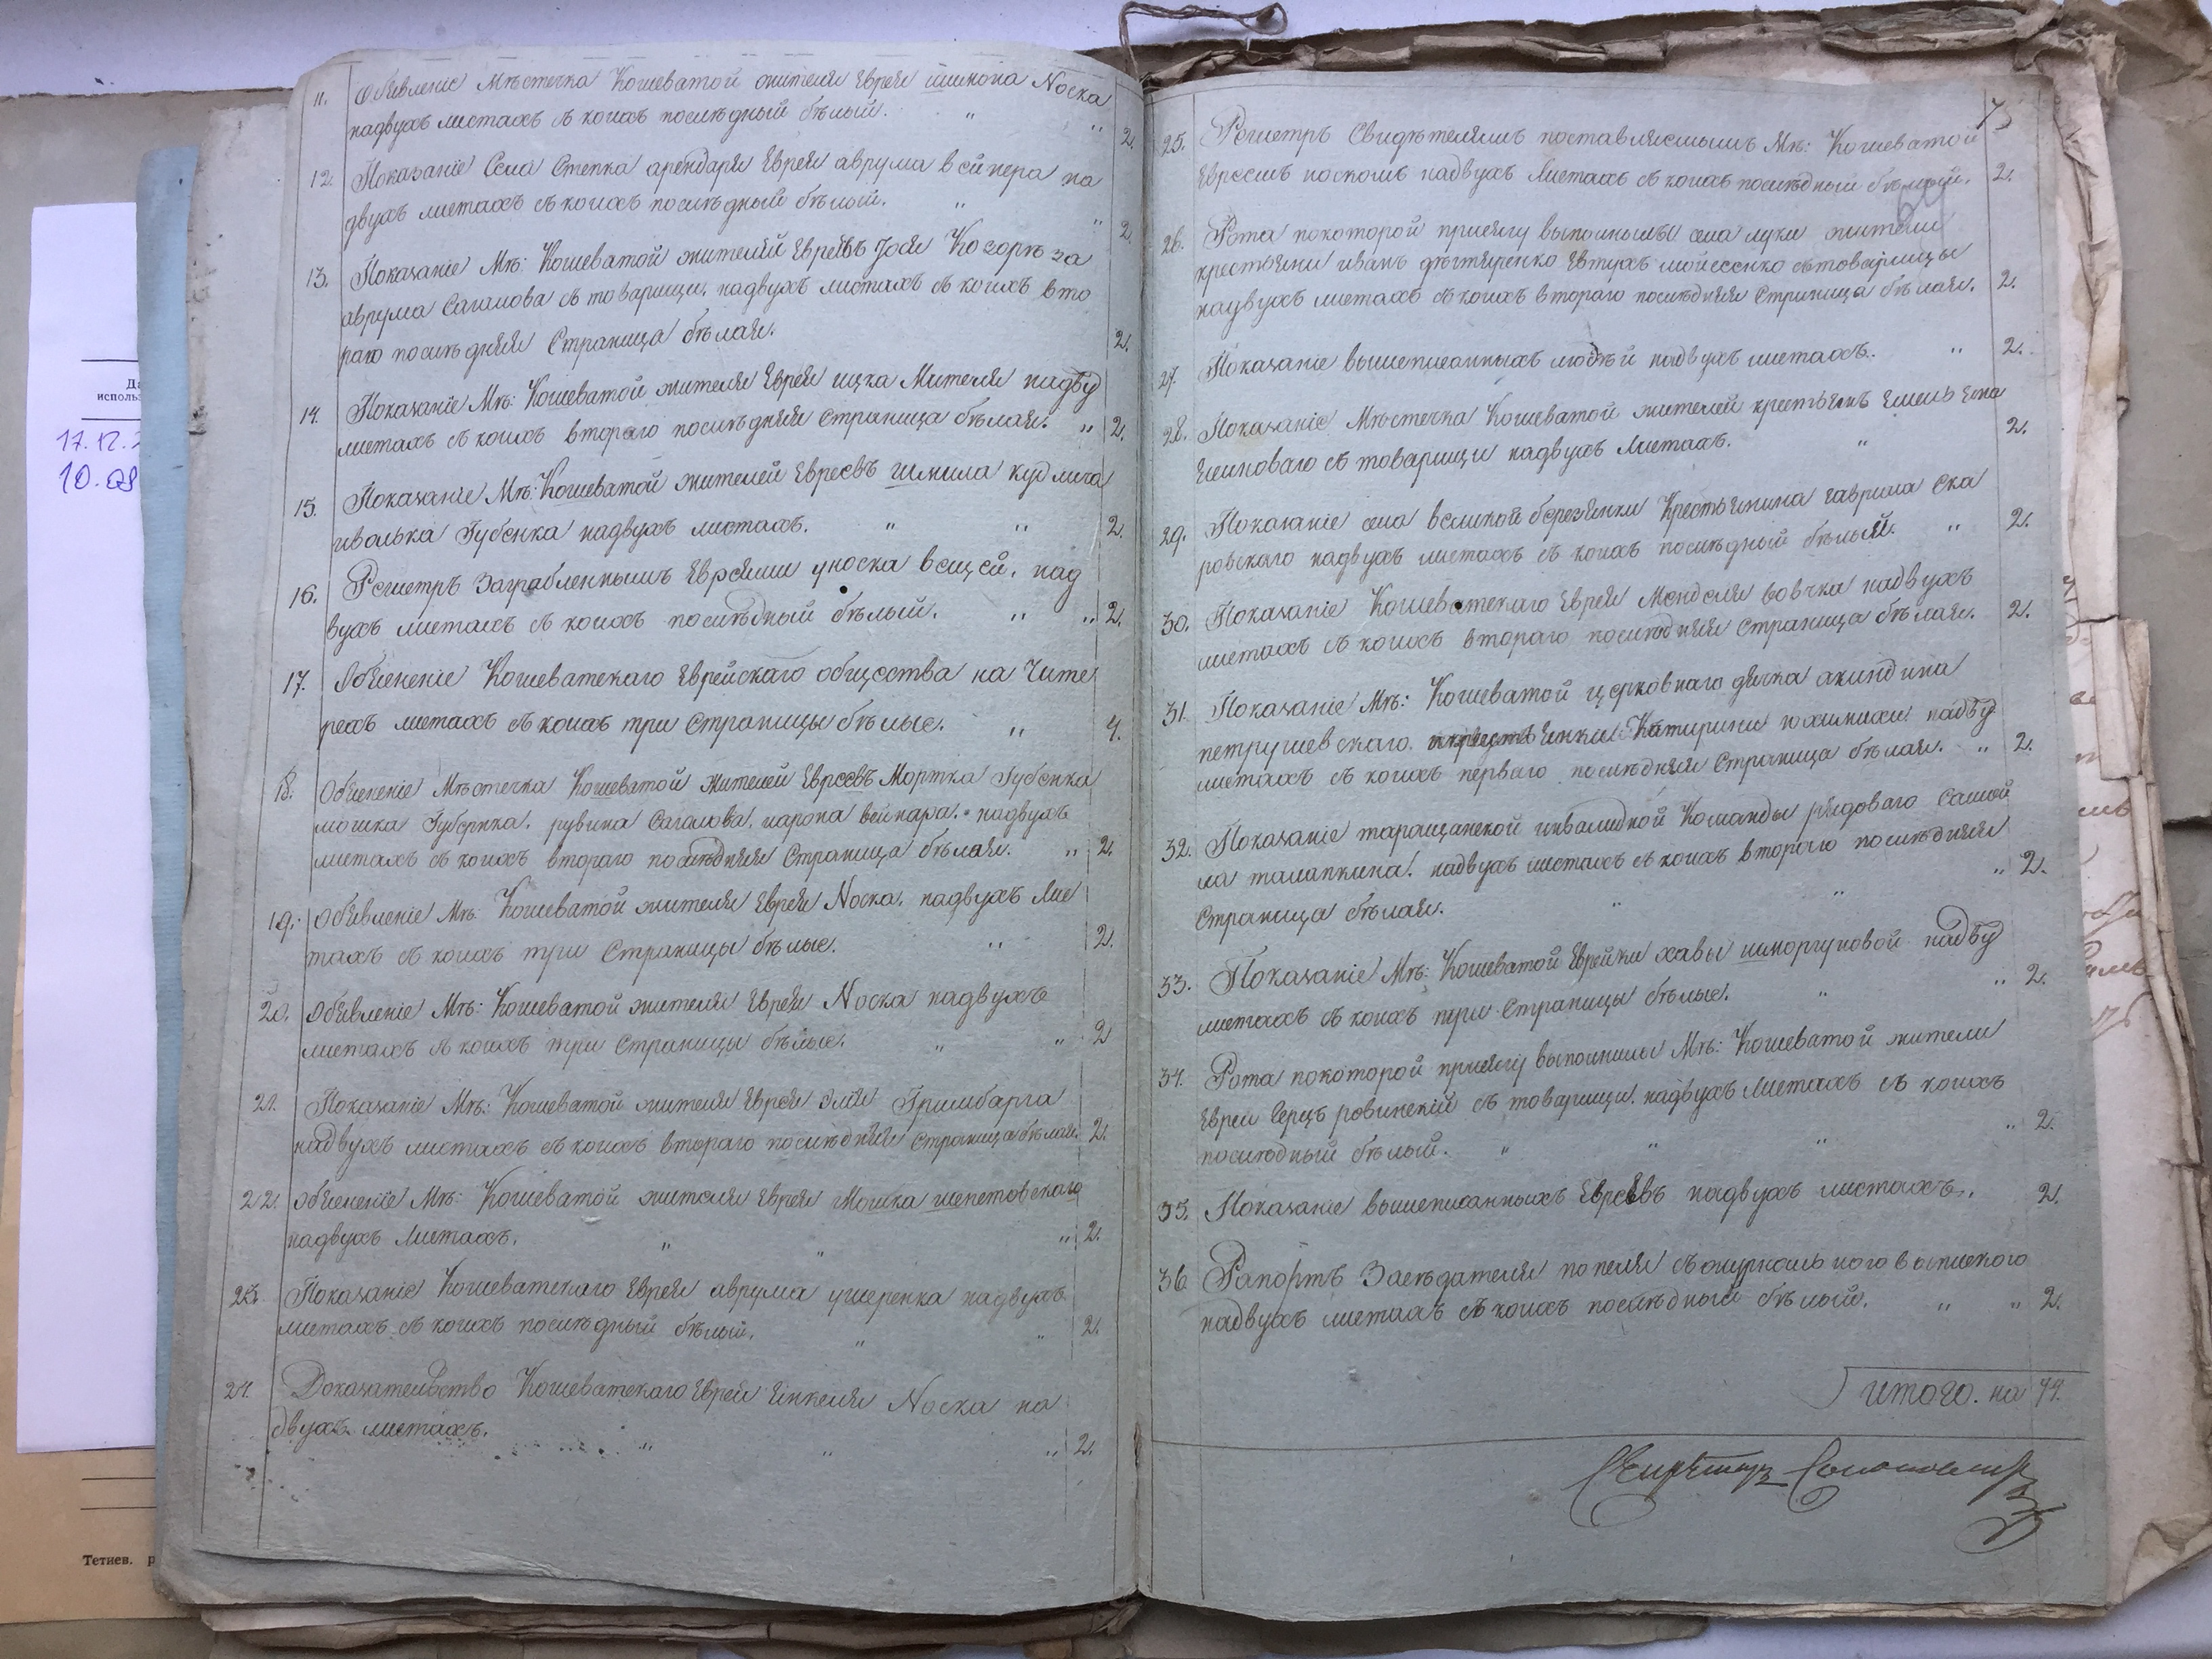 11. Обявленіе Мѣстечка Кошеватой жителя Еврея шимона Носка
надвухъ листахъ съ коихъ послѣдный бѣлый. " " 2.
12. Показаніе Села Степка арендаря Еврея аврума вейнера на
двухъ листахъ съ коихъ послѣдный бѣлый. " " 2.
13. Показаніе Мѣ: Кошеватой жителей Евреевъ Іося
аврума Саганова съ товарищи, надвухъ листахъ съ коихъ вто
раго послѣдняя Страница бѣлая. 2.
14. Показаніе Мѣ: Кошеватой жителя Еврея ицка Мителя надву
листахъ съ коихъ втораго послѣдняя страница бѣлая. " 2.
15. Показаніе Мѣ: Кошеватой жителей Евреевъ шмила
ивалька Губенка надвухъ листахъ. " " 2.
16. Регистръ Заграбленнымъ Евреями уноска вещей, над
вухъ листахъ съ коихъ послѣдный бѣлый. " " 2.
17. Обясненіе Кошеватскаго Еврейскаго общества на Чите
рехъ листахъ съ коихъ три Страницы бѣлые. " 4.
18. Обясненіе Мѣстечка Кошеватой жителей Евреевъ Мортка Губенка
мошка Губенка, рувина Саганова, иарона вейнара, надвухъ
листахъ съ коихъ втораго послѣдняя Страница бѣлая. " 2.
19. Обявленіе Мѣ: Кошеватой жителя Еврея Носка, надвухъ Лис
тахъ съ коихъ три Страницы бѣлые. " 2.
20. Обявленіе Мѣ: Кошеватой жителя Еврея Носка надвухъ
листахъ съ коихъ три Страницы бѣлые. " " 2
21. Показаніе Мѣ: Кошеватой жителя Еврея Эля Гримбарга
надвухъ листахъ съ коихъ втораго послѣдняя страница бѣлая. 2.
22. Обясненіе Мѣ: Кошеватой жителя Еврея Мошка шепетовскаго
надвухъ Листахъ. " " " 2.
23. Показаніе Кошеватскаго Еврея аврума ушеренка надвухъ
листахъ съ коихъ послѣдный бѣлый. " " 2.
24. Доказательство Кошеватскаго Еврея Янкеля Носка на
двухъ листахъ. " " " 2.
75
25. Регистръ Свидѣтелямъ поставляемымъ Мѣ: Кошеватой
Евреемъ носкомъ надвухъ Листахъ съ коихъ послѣдный бѣлый. 2.
64
26. Рота покоторой присягу выполнилы села луки жители
крестьяни иванъ дѣгтяренко Евтухъ мойсеенко сътоварищы
надвухъ листахъ съ коихъ втораго послѣдняя Страница бѣлая. 2.
27. Показаніе вышеписанныхъ людѣй надвухъ листахъ. " 2.
28. Показаніе Мѣстечка Кошеватой жителей крестьянъ
съ товарищи надвухъ Листахъ. " 2.
29. Показаніе села великой березянки Крестьянина гаврила ска
ровскаго надвухъ листахъ съ коихъ послѣдный бѣлый. " 2.
30. Показаніе Кошеватскаго Еврея Менделя вовчка надвухъ
листахъ съ коихъ втораго послѣдняя Страница бѣлая. 2.
31. Показаніе Мѣ: Кошеватой церковнаго дячка акиндина
петрушевскаго, икрестьянки Катирини юхимихи надву
листахъ съ коихъ перваго послѣдняя Страница бѣлая. " 2.
32. Показаніе таращанской инвалидной Команды рядоваго Самой
ла талапкина! надвухъ листахъ съ коихъ второго послѣдняя
Страница бѣлая. " " " 2.
33. Показаніе Мѣ: Кошеватой Еврейки хавы шморгуновой надву
листахъ съ коихъ три Страницы бѣлые. " " 2.
34. Рота покоторой присягу выполнилы Мѣ: Кошеватой жители
Евреи Герцъ ровинскій съ товарищи, надвухъ Листахъ съ коихъ
послѣдный бѣлый. " " " " 2.
35. Показаніе вышеписанныхъ Евреевъ надвухъ листахъ. 2.
36. Рапортъ Засѣдателя попеля
надвухъ листахъ съ коихъ послѣдный бѣлый. " " 2.
итого. на 74.
Секретарь
Да
исполь
17.12.
10.08
Тетиев. р